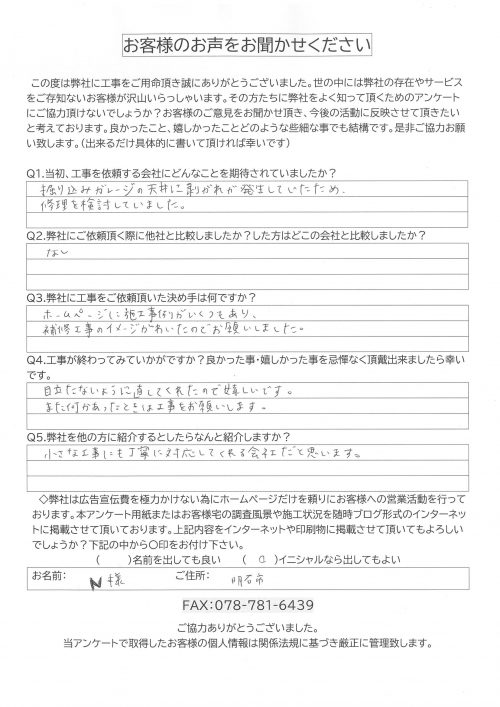 お客様のお声をお聞かせください
この度は弊社に工事をご用命頂き誠にありがとうございました。世の中には弊社の存在やサービス
をご存知ないお客様が沢山いらっしゃいます。その方たちに弊社をよく知って頂くためのアンケート
にご協力頂けないでしょうか？お客様のご意見をお聞かせ頂き、今後の活動に反映させて頂きたい
と考えております。良かったこと、嬉しかったことどのような些細な事でも結構です。是非ご協力お願
い致します。（出来るだけ具体的に書いて頂ければ幸いです）
Q1.当初、工事を依頼する会社にどんなことを期待されていましたか？
掘り込みガレージの天井に剥がれが発生していたため、
修理を検討していました。
Q2.弊社にご依頼頂く際に他社と比較しましたか？した方はどこの会社と比較しましたか？
なし
Q3.弊社に工事をご依頼頂いた決め手は何ですか？
ホームページに施工事例がいくつもあり、
補修工事のイメージがわいたのでお願いしました。
Q4.工事が終わってみていかがですか？良かった事・嬉しかった事を忌憚なく頂戴出来ましたら幸い
です。
目立たないように直してくれたので嬉しいです。
また何かあったときは工事をお願いします。
Q5.弊社を他の方に紹介するとしたらなんと紹介しますか？
小さな工事にも丁寧に対応してくれる会社だと思います。
◇弊社は広告宣伝費を極力かけない為にホームページだけを頼りにお客様への営業活動を行って
おります。本アンケート用紙またはお客様宅の調査風景や施工状況を随時ブログ形式のインターネッ
トに掲載させて頂いております。上記内容をインターネットや印刷物に掲載させて頂いてもよろしい
でしょうか？下記の中から〇印をお付け下さい。
（　　）名前を出しても良い　（　○　）イニシャルなら出してもよい
お名前：　N様　ご住所：　明石市
FAX：078-781-6439
ご協力ありがとうございました。
当アンケートで取得したお客様の個人情報は関係法規に基づき厳正に管理致します。